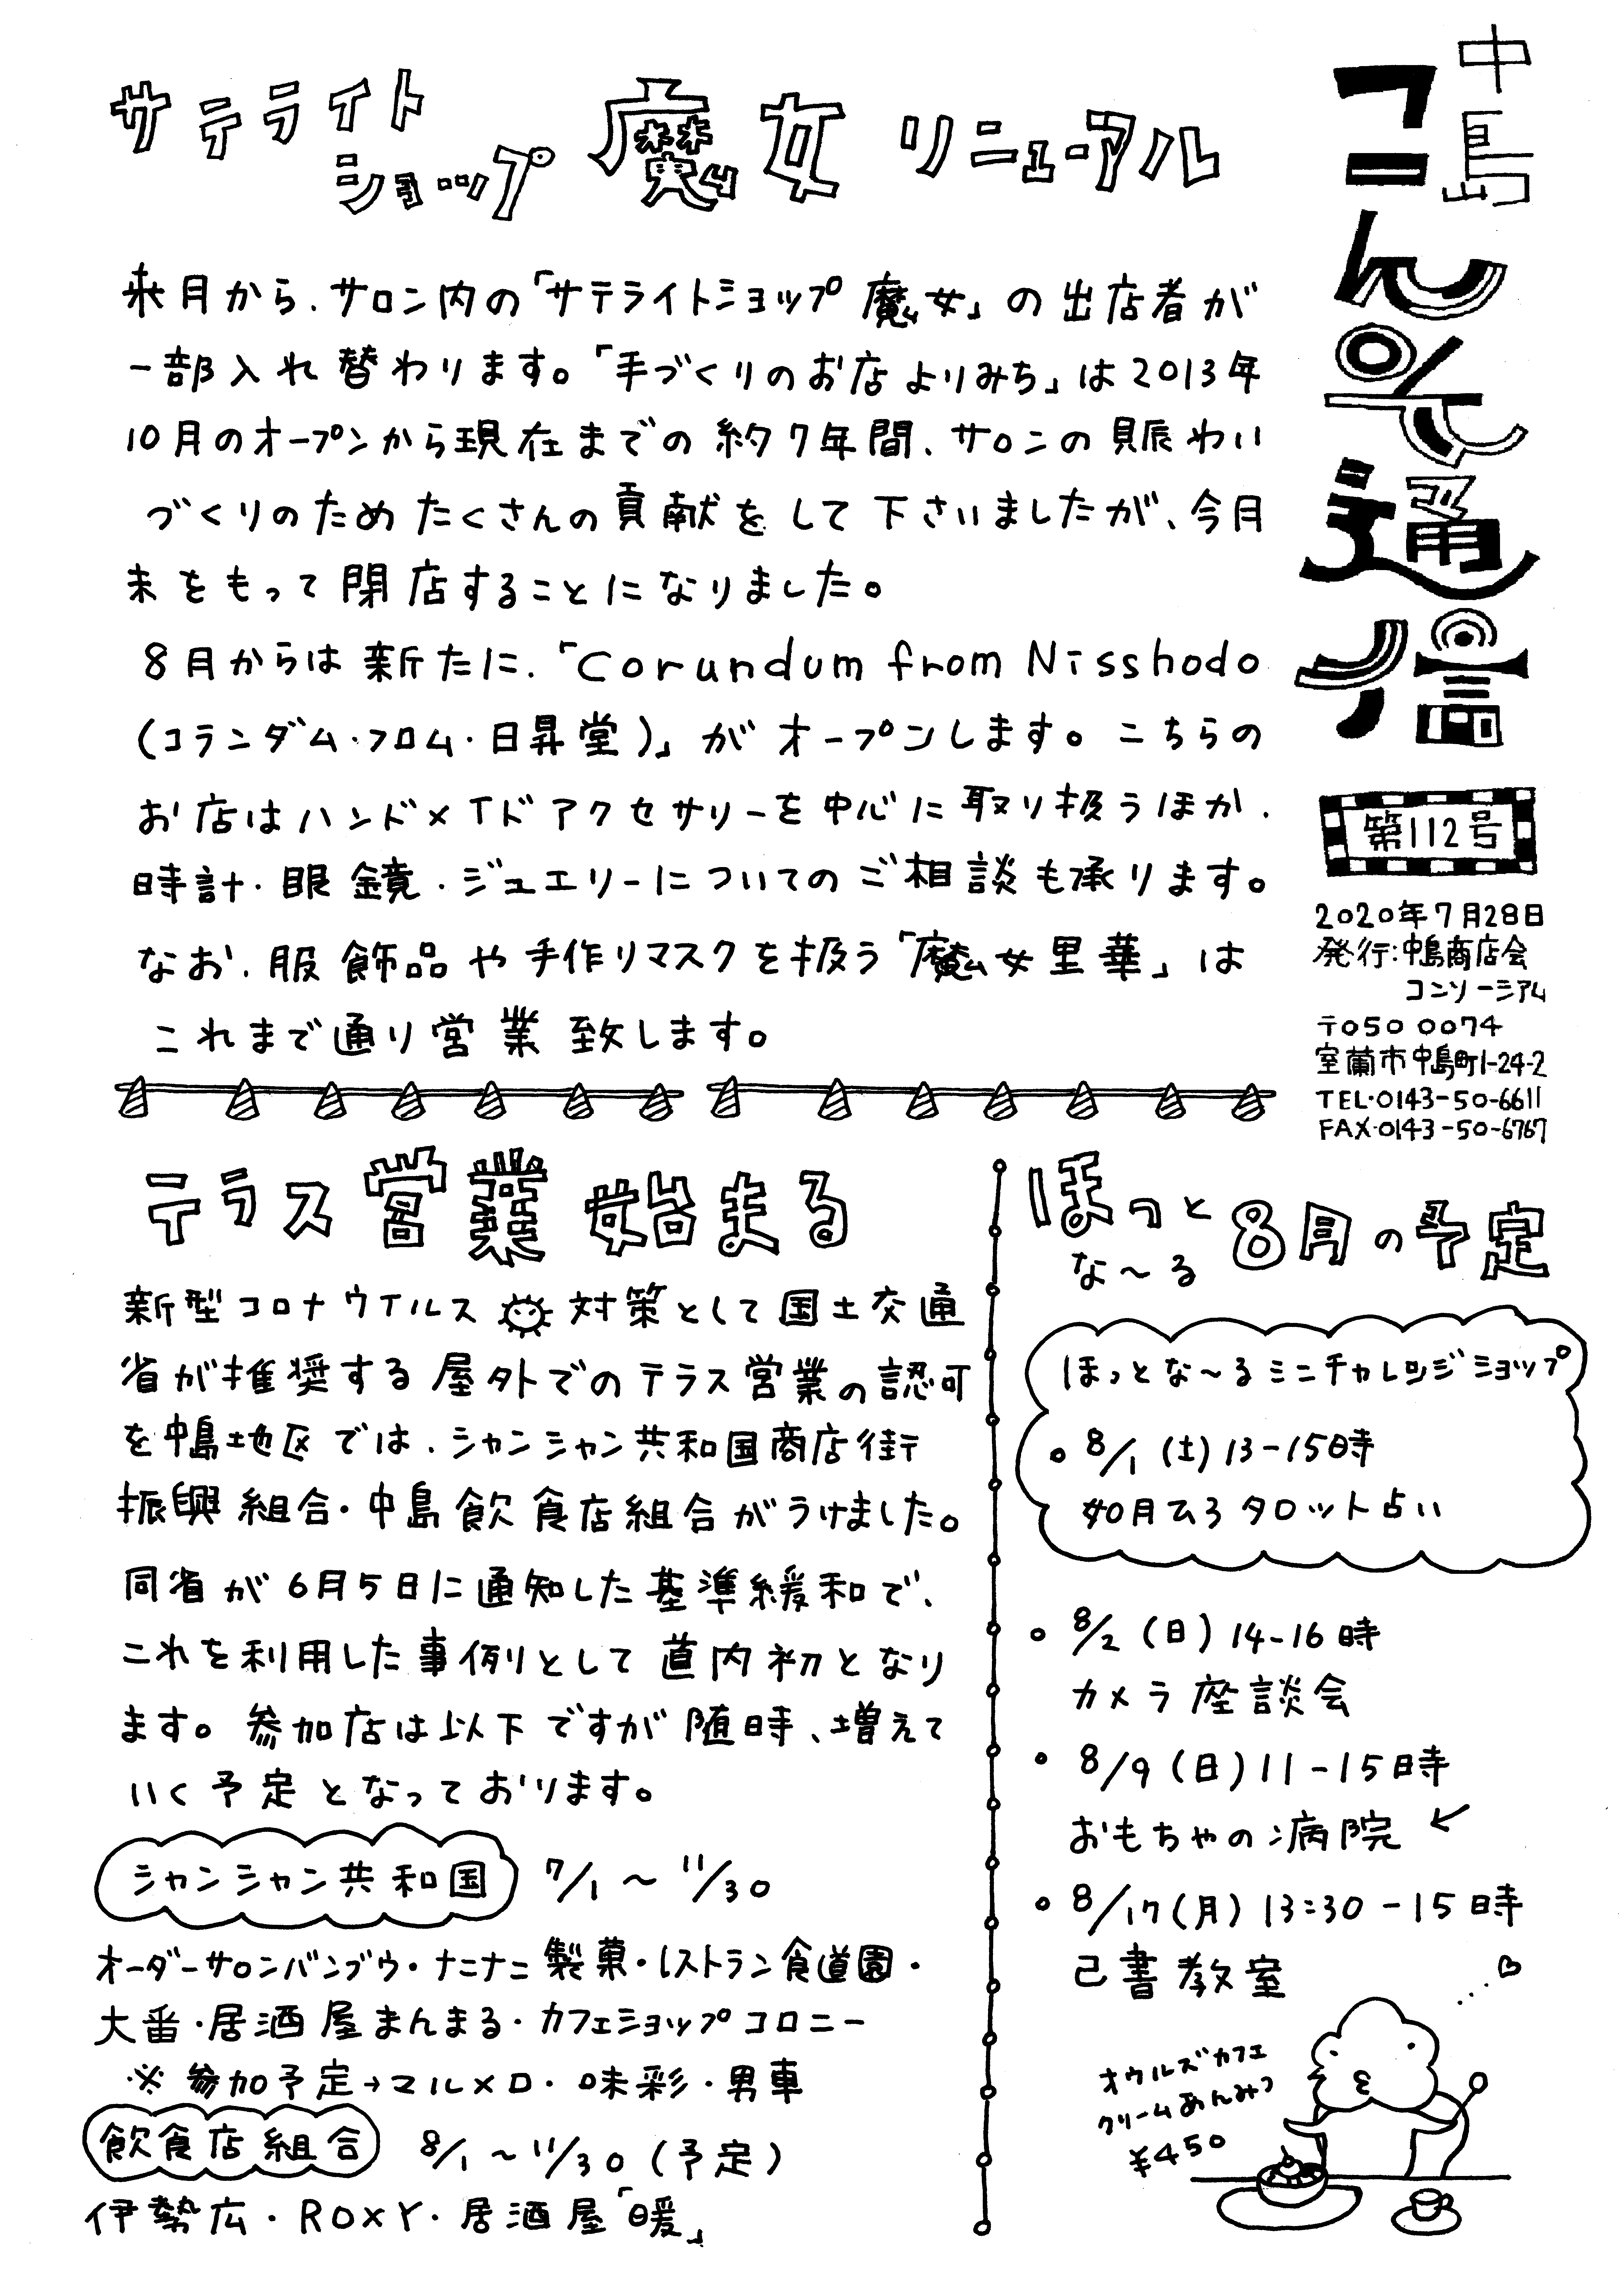 中島
こんせ通信
第112号
2020年7月28日
発行:中島商店会
コンソーシアム
〒050 0074
室蘭市中島町1-24-2
TEL・0143-50-6611
FAX・0143-50-6767
サテライト
ショップ 魔女 リニューアル
来月から、サロン内の「サテライトショップ 魔女」の出店者が
一部入れ替わります。「手づくりのお店よりみち」は2013年
10月のオープンから現在までの約7年間、サロンの賑わい
づくりのためたくさんの貢献をして下さいましたが、今月
末をもって閉店することになりました。
8月からは新たに、「Corundum from Nisshodo
(コランダム・フロム・日昇堂)」がオープンします。こちらの
お店はハンドメイドアクセサリーを中心に取り扱うほか、
時計・眼鏡・ジュエリーについてのご相談も承ります。
なお、服飾品や手作りマスクを扱う「魔女里華」は
これまで通り営業致します。
テラス営業始まる
新型コロナウイルス対策として国土交通
省が推奨する屋外でのテラス営業の認可
を中島地区では、シャンシャン共和国商店街
振興組合・中島飲食店組合がうけました。
同省が6月5日に通知した基準緩和で、
これを利用した事例として道内初となり
ます。参加店は以下ですが随時、増えて
いく予定となっております。
シャンシャン共和国 7/1~11/30
オーダーサロンバンブウ・ナニナニ製菓・レストラン食道園・
大番・居酒屋まんまる・カフェショップコロニー
※参加予定→マルメロ・味彩・男車
飲食店組合 8/1~11/30(予定)
伊勢広・ROXY・居酒屋「暖」
ほっと
な~る 8月の予定
ほっとな~るミニチャレンジショップ
8/1(土)13-15時
如月ひろタロット占い
8/2(日)14-16時
カメラ座談会
8/9(日)11-15時
おもちゃの病院
8/17(月)13:30-15時
己書教室
オウルズカフェ
クリームあんみつ
¥450